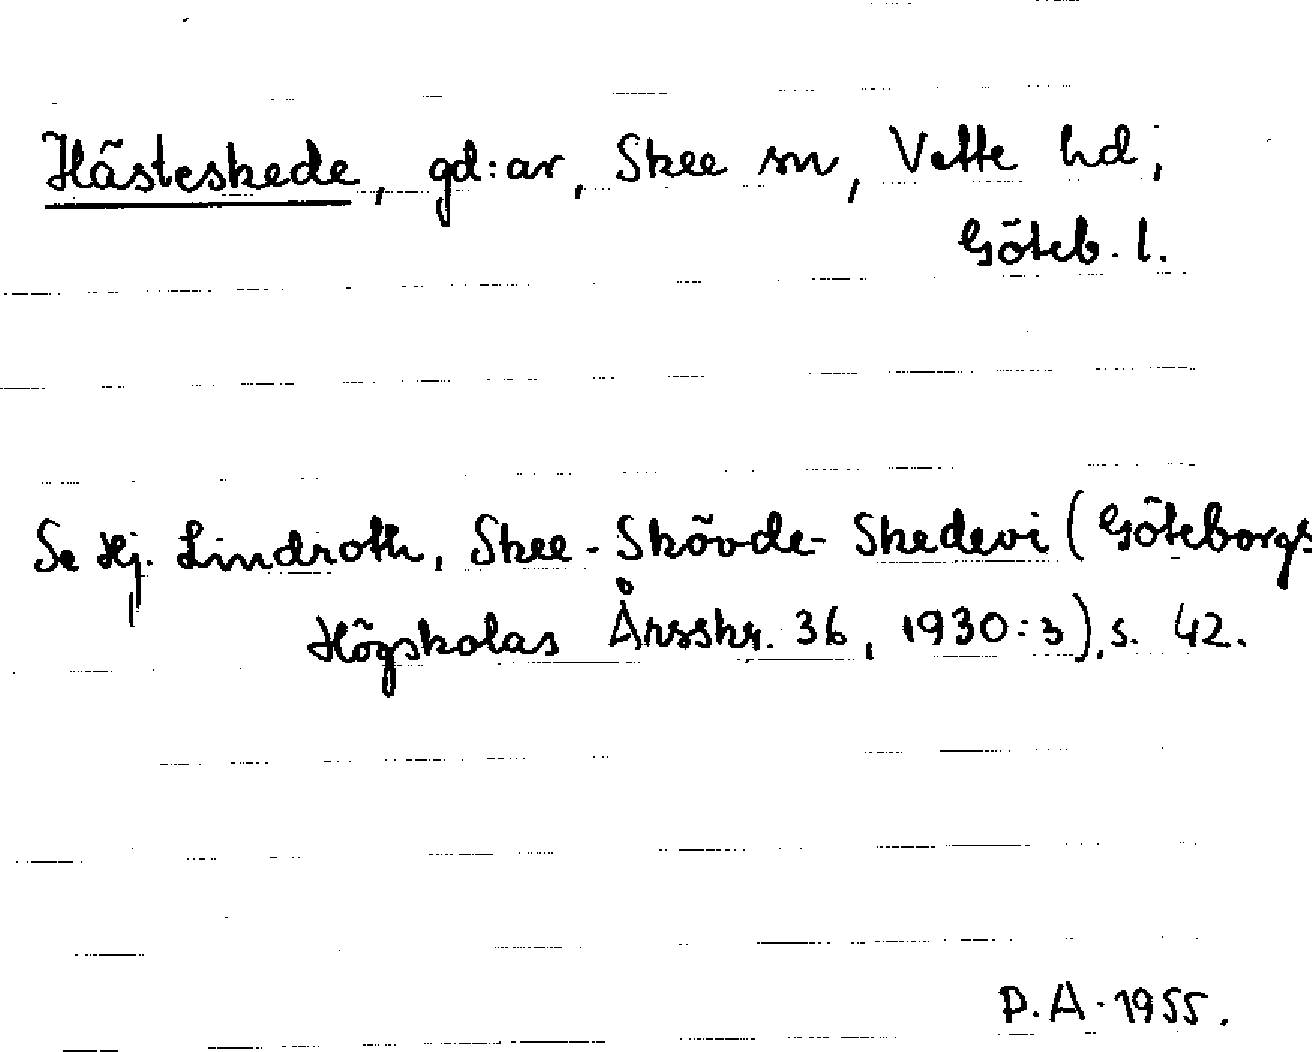 Hästeskede, gd:ar, Skee sn, Vette hd,
Göteb. l.
Se Hj. Lindroth, Skee-Skövde-Skedevi (Göteborgs
Högskolas Årsskr. 36, 1930:3), s. 42.
P.A. 1955.